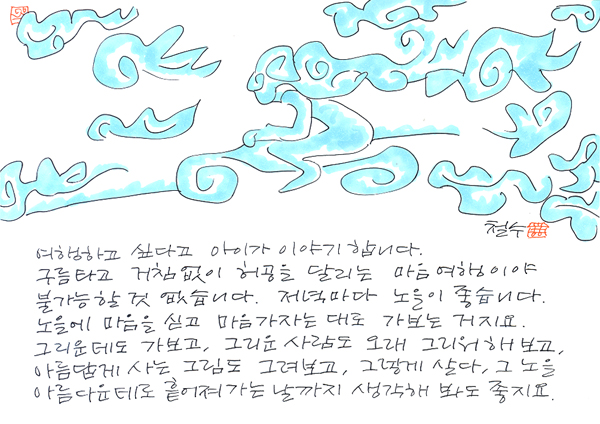 철수
여행하고 싶다고 아이가 이야기 합니다.
구름타고 거침없이 허공을 달리는 마음여행이야
불가능할 것 없습니다. 저녁마다 노을이 좋습니다.
노을에 마음을 싣고 마음가자는 대로 가보는 거지요.
그리운데도 가보고, 그리운 사람도 오래 그리워해 보고,
아름답게 사는 그림도 그려보고, 그렇게 살다, 그 노을
아름다운데로 흩어져가는 날까지 생각해 봐도 좋지요.